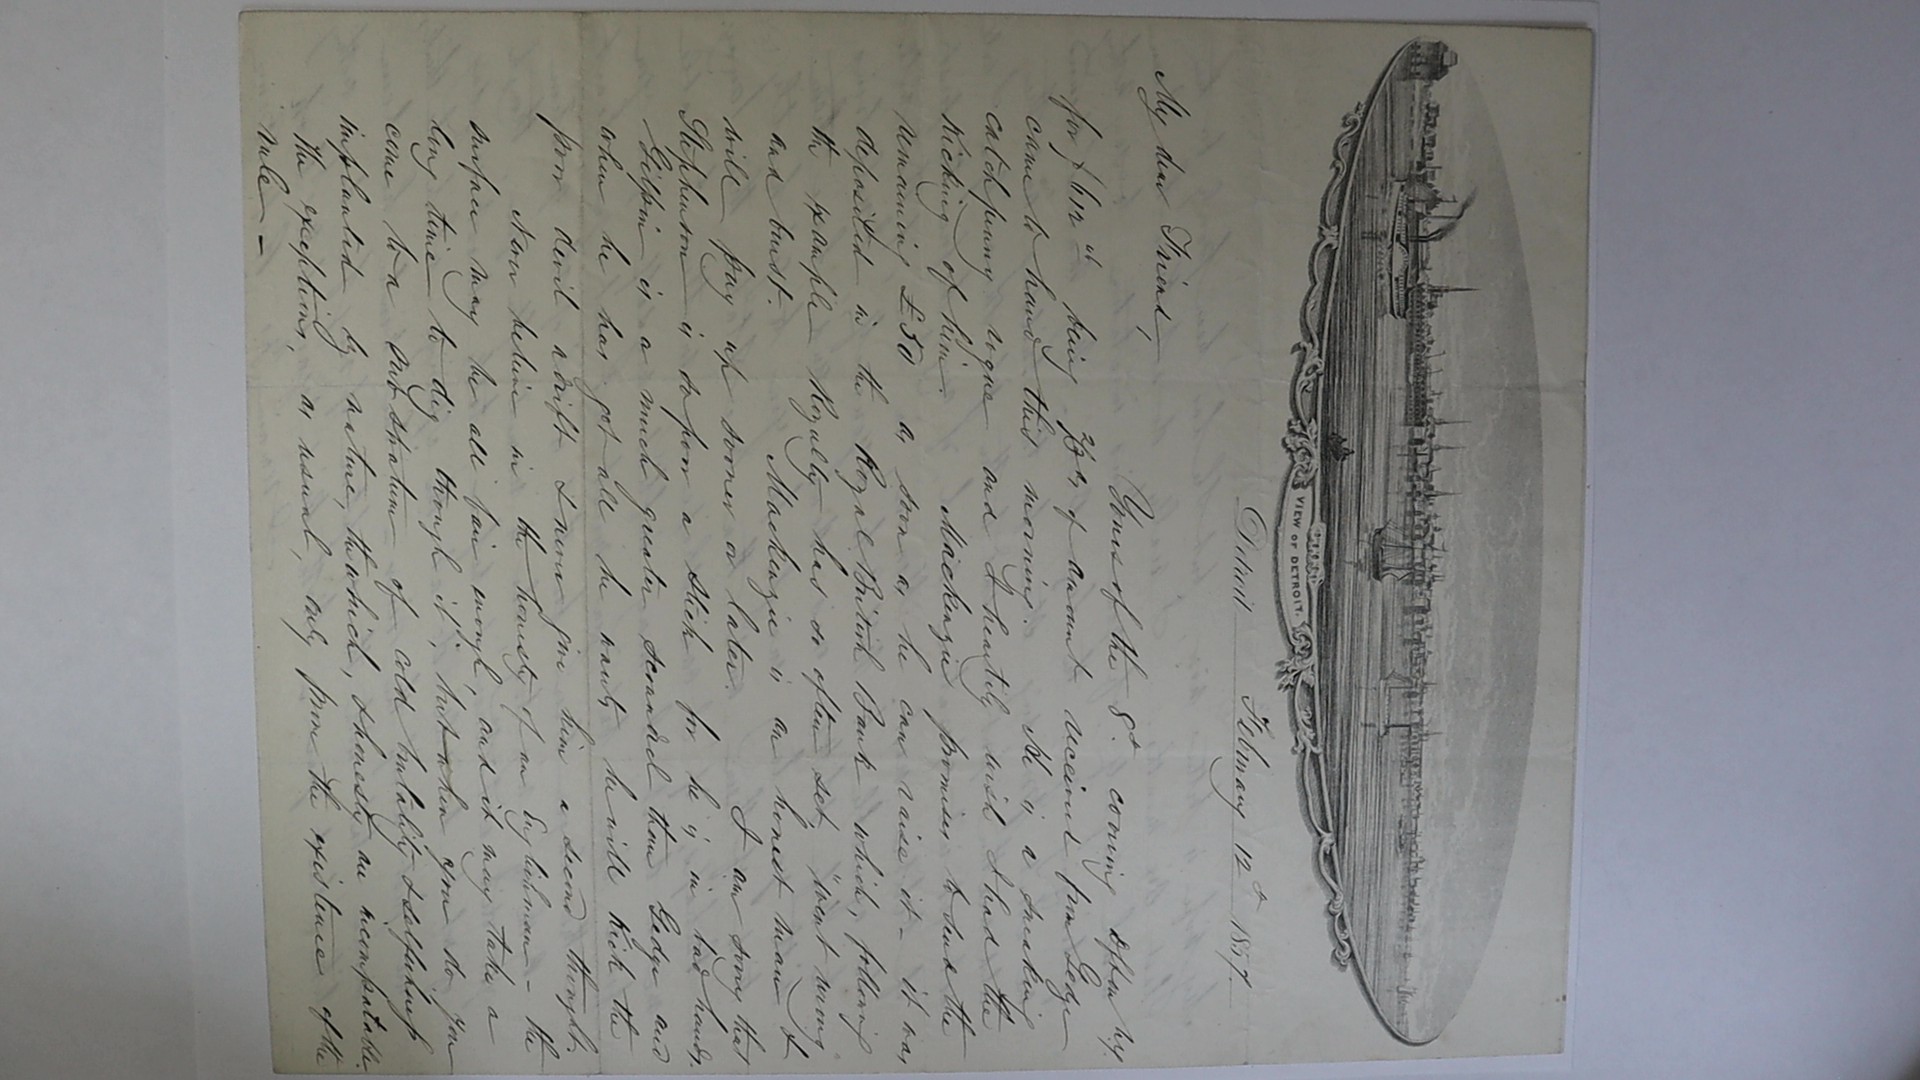 VIEW OF DETROIT.
Detroit February 12th 1857.
My dear Friend,
Yours of the 8th covering Dft on N.Y.
for $612 being of amount received from Gedge
came to hand this morning. He is a sneaking
catchpenny rogue and I heartily wish I had the
kicking of him. Mackenzie promises to send the
remaining £50 as soon as he can raise it - it was
deposited in the Royal British Bank which, following
the example Royalty has so often set, "went wrong"
and burst. Mackenzie is an honest man &
will pay up sooner or later. I am sorry that
Stephenson is so poor a stick for he is in bad hands.
Gilpin is a much greater scoundrel than Gedge and
when he has got all he wants he will kick the
poor devil adrift & never give him a second thought.
Never believe in the honesty of an Englishman - the
surface may be all fair enough and it may take a
long time to dig through it, but when you do you
come to a substratum of cold brutality & selfishness
implanted by nature, to which, honesty are incompatable.
The exceptions, as usual, only prove the existence of the
rule -